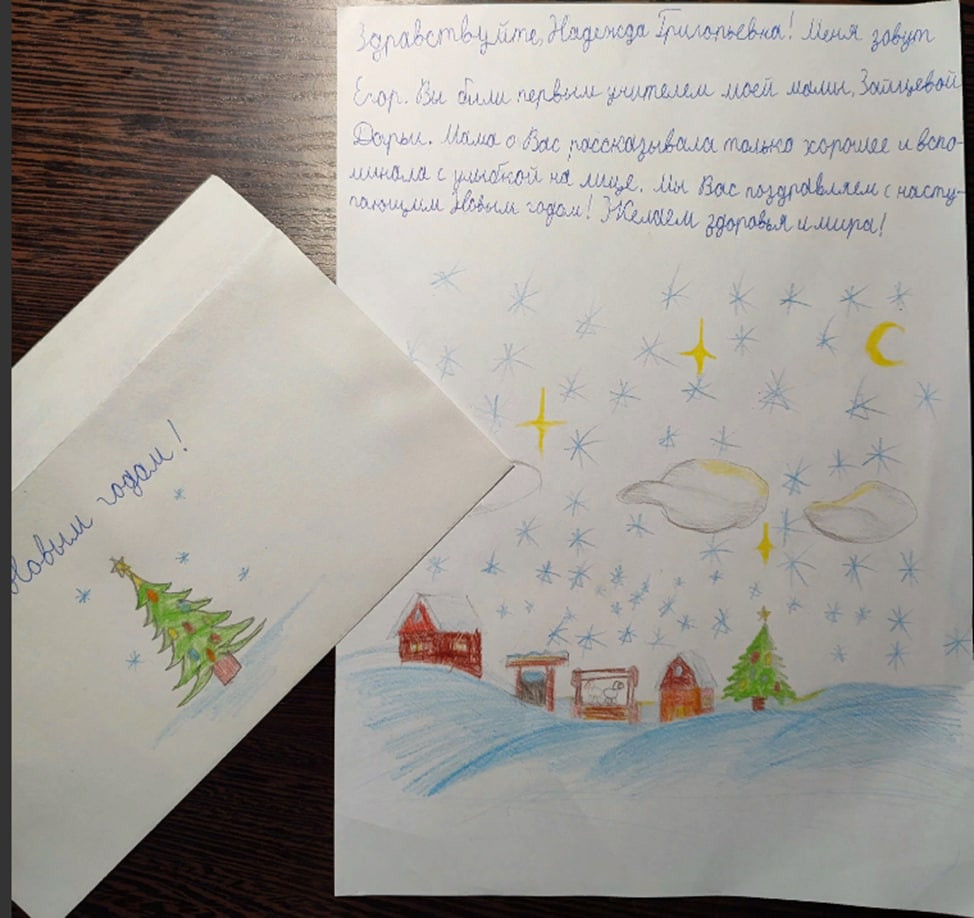 Здравствуйте, Надежда Григорьевна! Меня зовут
Егор. Вы были первым учителем моей мамы, Зайцевой
Дарьи. Мама о Вас рассказывала только хорошее и вспо-
минала с улыбкой на лице. Мы Вас поздравляем с насту-
пающим Новым годом! Желаем здоровья и мира!
Новым годом!